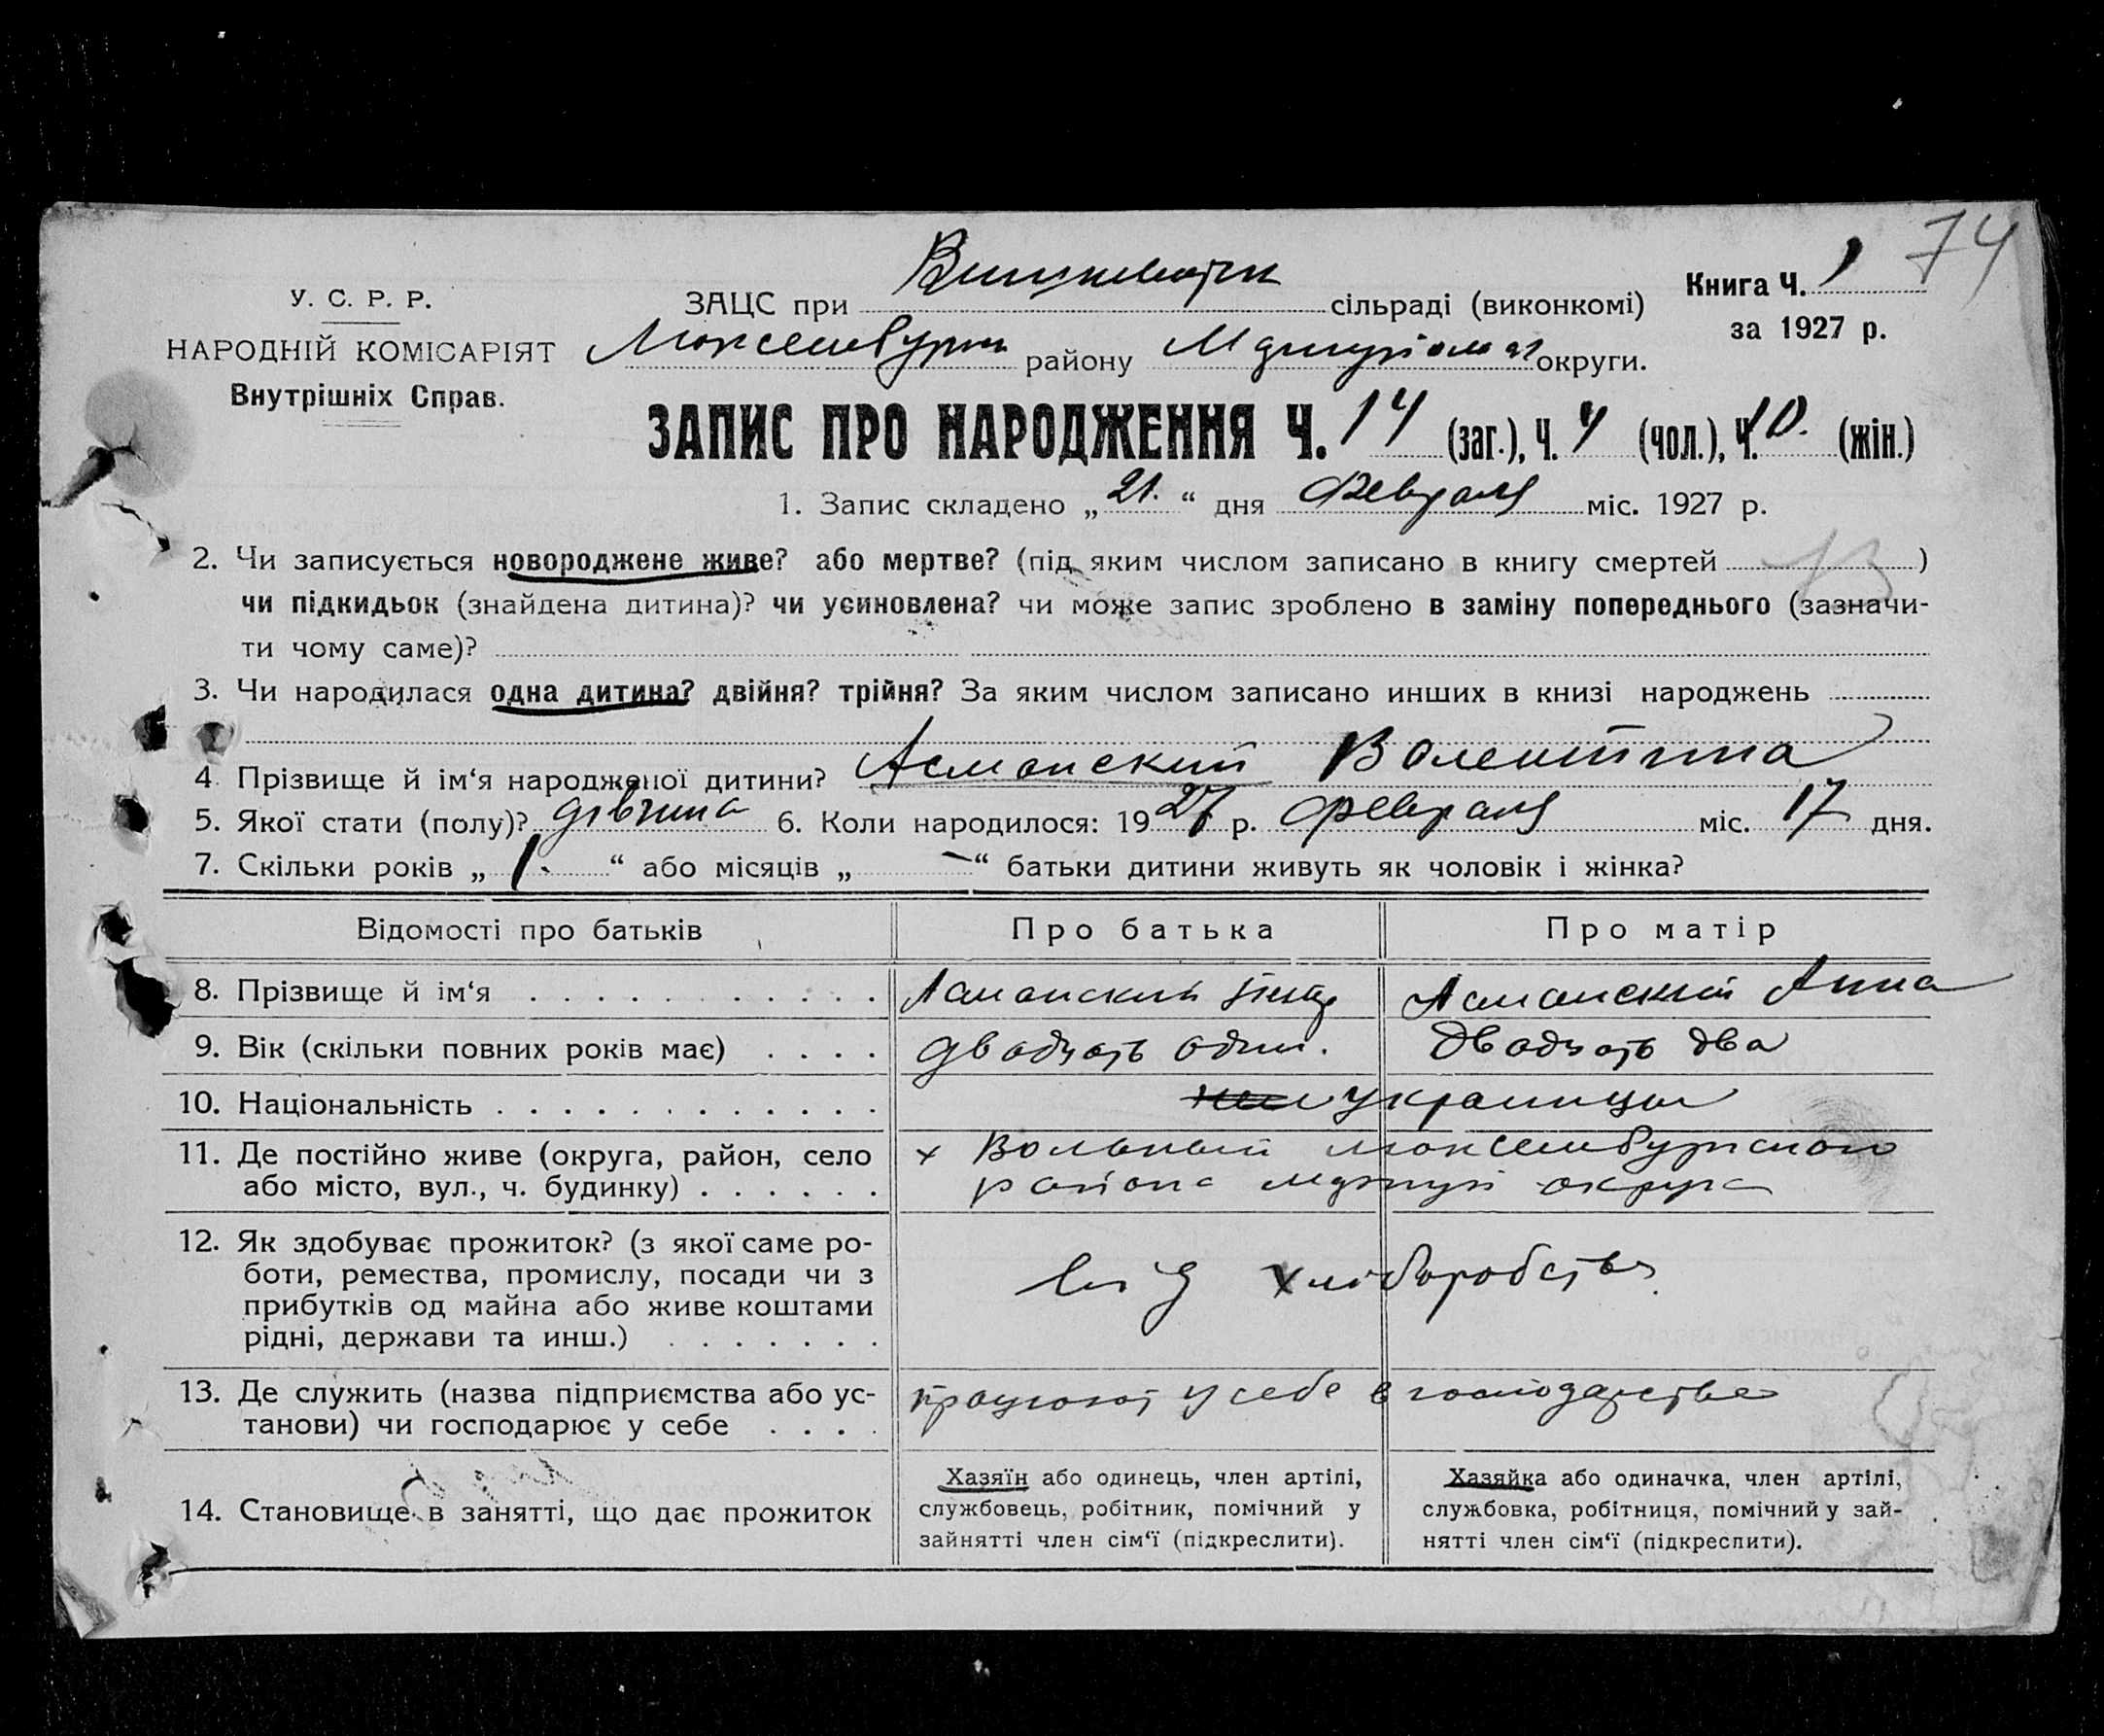 74
У. С. Р. Р.
НАРОДНІЙ КОМІСАРІЯТ
Внутрішніх Справ.
ЗАЦС при сільраді (виконкомі)
району округи.
Книга Ч. 1
за 1927 р.
ЗАПИС ПРО НАРОДЖЕННЯ Ч. 14 (заг.), Ч. 4 (чол.), Ч. 10. (жін.)
1. Запис складено „ 21. “ дня Февраля міс. 1927 р.
2. Чи записується новороджене живе? або мертве? (під яким числом записано в книгу смертей )
чи підкидьок (знайдена дитина)? чи усиновлена? чи може запис зроблено в заміну попереднього (зазначи-
ти чому саме)?
3. Чи народилася одна дитина? двійня? трійня? За яким числом записано инших в книзі народжень
4 Прізвище й ім‘я народженої дитини? Асманский Валентина
5. Якої стати (полу)? дівчина 6. Коли народилося: 1927 р. Февраля міс. 17 дня.
7. Скільки років „ 1. “ або місяців „ — “ батьки дитини живуть як чоловік і жінка?
Відомості про батьків Про батька Про матір
8. Прізвище й ім‘я Асманский Асманский Анна
9. Вік (скільки повних років має) двадцать один. Двадцать два
10. Національність украинцы
11. Де постійно живе (округа, район, село Вольный
або місто, вул., ч. будинку) района округа
12. Як здобуває прожиток? (з якої саме ро-
боти, ремества, промислу, посади чи з від хліборобства
прибутків од майна або живе коштами
рідні, держави та инш.)
13. Де служить (назва підприємства або ус- працюют у себе в господарстве
танови) чи господарює у себе
14. Становище в занятті, що дає прожиток
Хазяїн або одинець, член артілі,
службовець, робітник, помічний у
зайнятті член сім‘ї (підкреслити).
Хазяйка або одиначка, член артілі,
службовка, робітниця, помічний у зай-
нятті член сім‘ї (підкреслити).